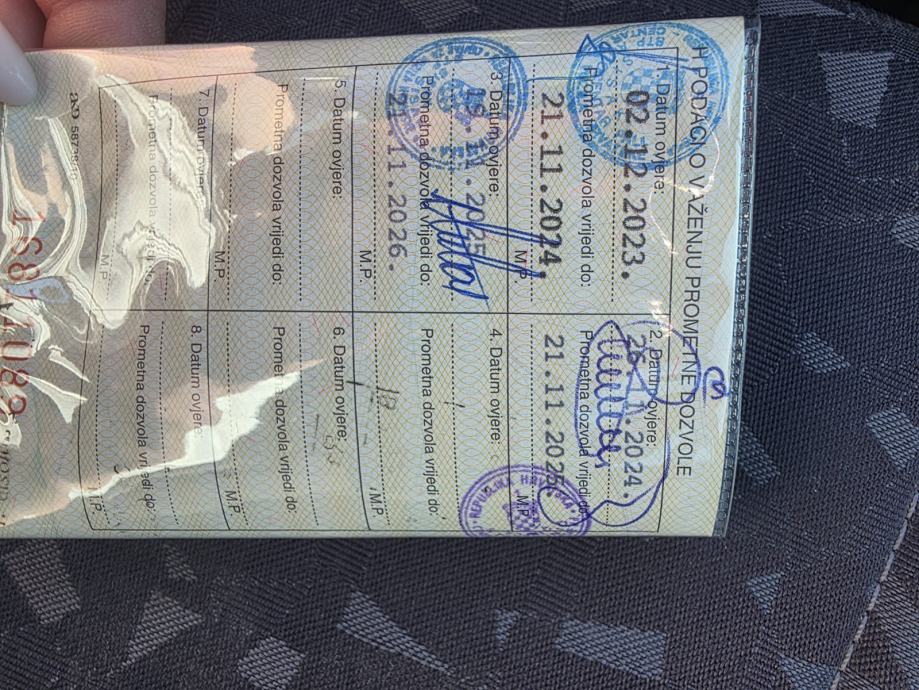 H PODACI O VAŽENJU PROMETNE DOZVOLE
Datum ovjere:
02.12.2023.
Prometna dozvola vrijedi do:
21.11.2024.
M.P.
2. Datum ovjere:
.2024.
Prometna dozvola vrijedi do:
21.11.2025.
M.P.
REPUBLIKA HRVATSKA
3. Datum ovjere:
2025.
Prometna dozvola vrijedi do:
21.11.2026.
M.P.
4. Datum ovjere:
Prometna dozvola vrijedi do:
M.P.
5. Datum ovjere:
Prometna dozvola vrijedi do:
M.P.
6. Datum ovjere:
Prometna dozvola vrijedi do:
M.P.
7. Datum ovjere:
Prometna dozvola vrijedi do:
M.P.
8. Datum ovjere:
Prometna dozvola vrijedi do:
M.P.